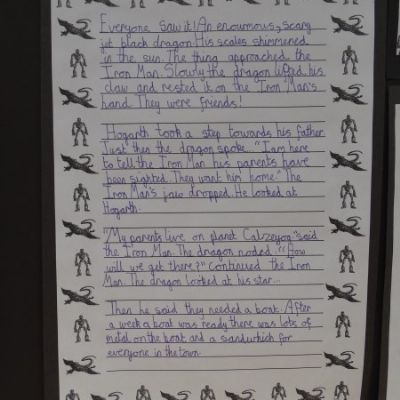 Everyone saw it! An enoumous, scary
jet black dragon. His scales shimmered
in the sun. The thing approached the
Iron Man. Slowly the dragon lifted his
claw and rested it on the Iron Man's
hand. They were friends!
Hogarth took a step towards his father.
Just then the dragon spoke. "I am here
to tell the Iron Man his parents have
been sighted. They want him home." The
Iron Man's jaw dropped. He looked at
Hogarth.
"My parents live on planet Calzeyon" said
the Iron Man. The dragon noded. "How
will we get there?" Continued the Iron
Man. The dragon looked at his star...
Then he said they needed a boat. After
a week a boat was ready there was lots of
metal on the boat and a sandwhich for
everyone in the town.